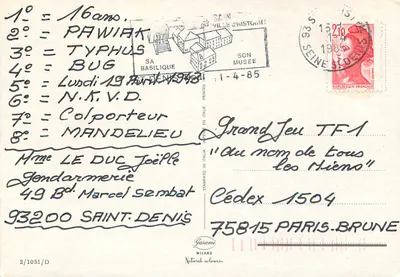 1° = 16 ano.
2° = PAWIAK
3° = TYPHUS
4° = BUG
5° = Lundi 19 Avril 1943
6° = N.K.V.D.
7° = Colporteur
8° = MANDELIEU
Mme LE DUC Joëlle
Gendarmerie
49 Bd Marcel Sembat
93200 SAINT-DENIS
2/1051/D
VILLE D'HISTOIRE
SA
BASILIQUE
SON
MUSÉE
1-4-85
93 S
15
1985
SEINE ST DENIS
2,10
Grand Jeu TF1
"au nom de tous
les Miens"
Cédex 1504
75815 PARIS-BRUNE
MILANO